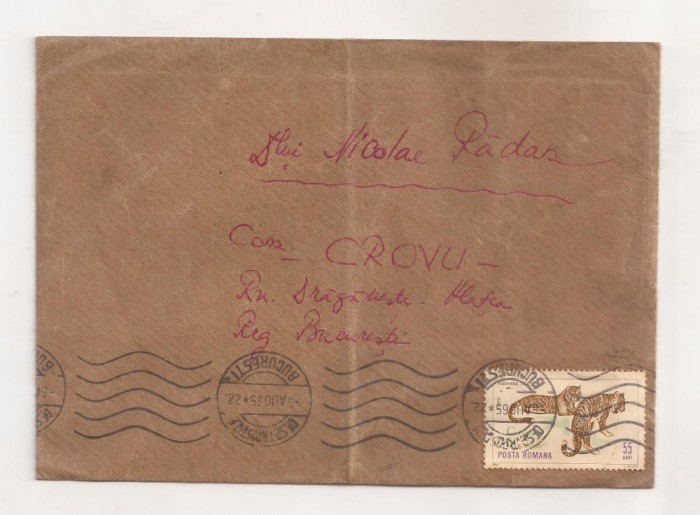 Dlui Nicolae Rădas
Com. CROVU -
Rn. Drăgănești - Vlașca
Reg București
BUCUREȘTI
-3AUG65*22.
BUCUREȘTI
-3AUG65*22.
POSTA ROMANA
55
BANI